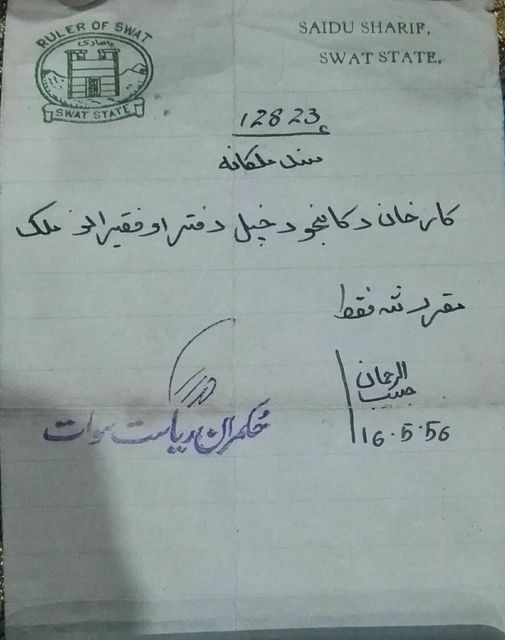 RULER OF SWAT
یاھادی
SWAT STATE
SAIDU SHARIF,
SWAT STATE,
12823
سند ملکانہ
کارخان د کانجو د خپل دفتر او فقیرانو ملک
مقرر شہ فقط
حبیب الرحمان
16.5.56
حکمران ریاست سوات